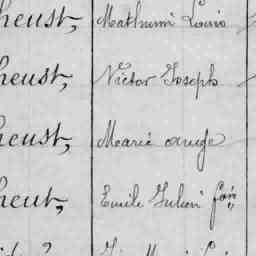 heust, Mathurin Louis
heust, Victor Joseph
heust, Marie ange
heut, Emile Julien